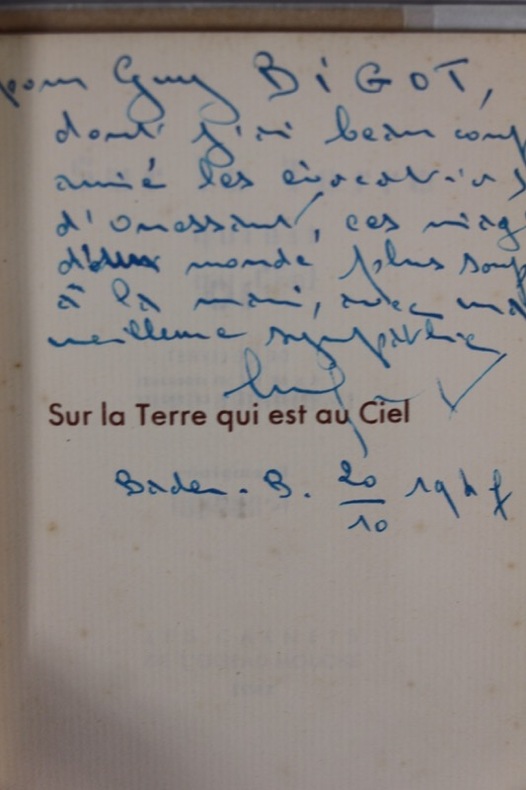 pour Guy BIGOT,
dont j'ai beaucoup
aimé les évocations
d'Ouessant, ces
d'un monde plus
à la main, avec ma
meilleure sympathie
Sur la Terre qui est au Ciel
Baden-B. 20/10 194